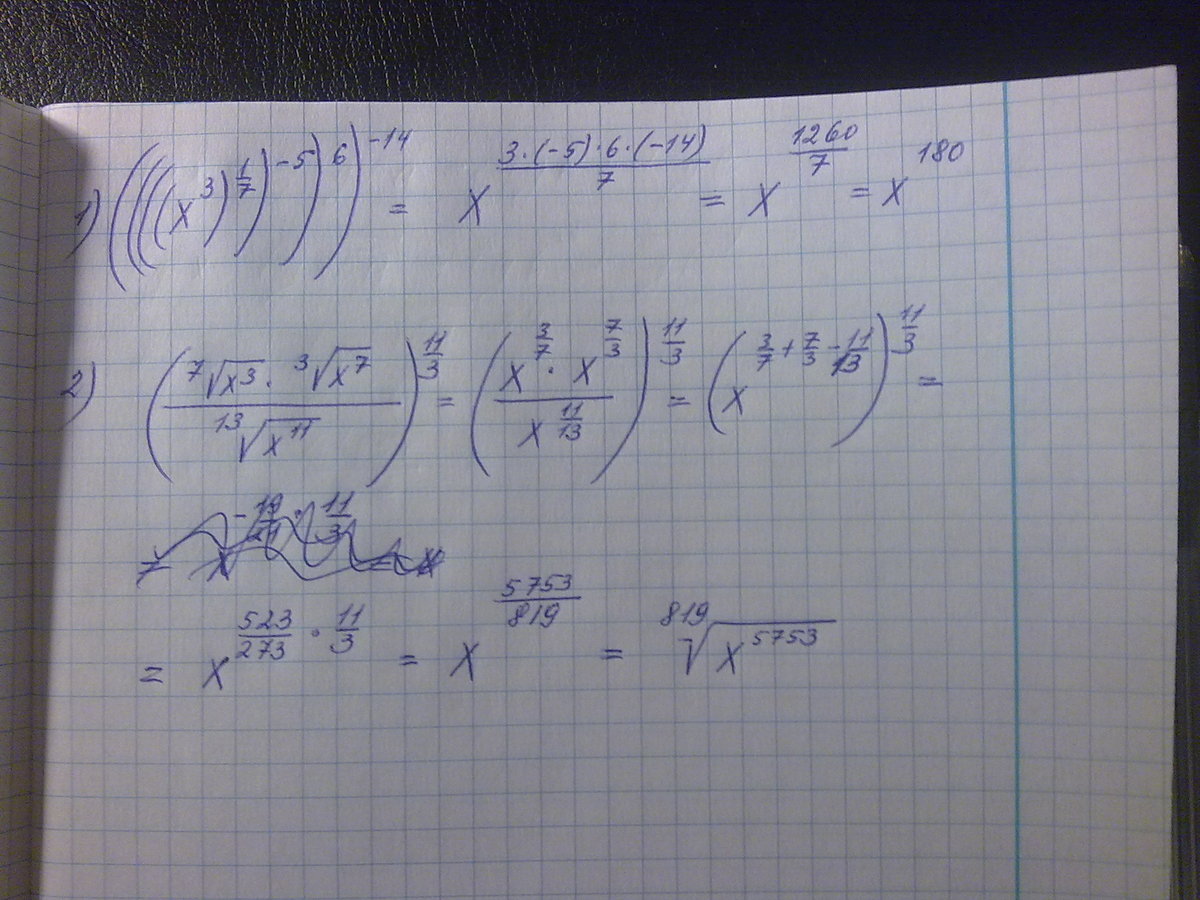 1) ((((x^3)^{1/7})^{-5})^6)^{-14} = x^{3·(-5)·6·(-14)/7} = x^{1260/7} = x^{180}
2) (⁷√x³ · ³√x⁷ / ¹³√x¹¹)^{11/3} = (x^{3/7} · x^{7/3} / x^{11/13})^{11/3} = (x^{3/7 + 7/3 - 11/13})^{11/3} =
= x^{523/273 · 11/3} = x^{5753/819} = ⁸¹⁹√x⁵⁷⁵³